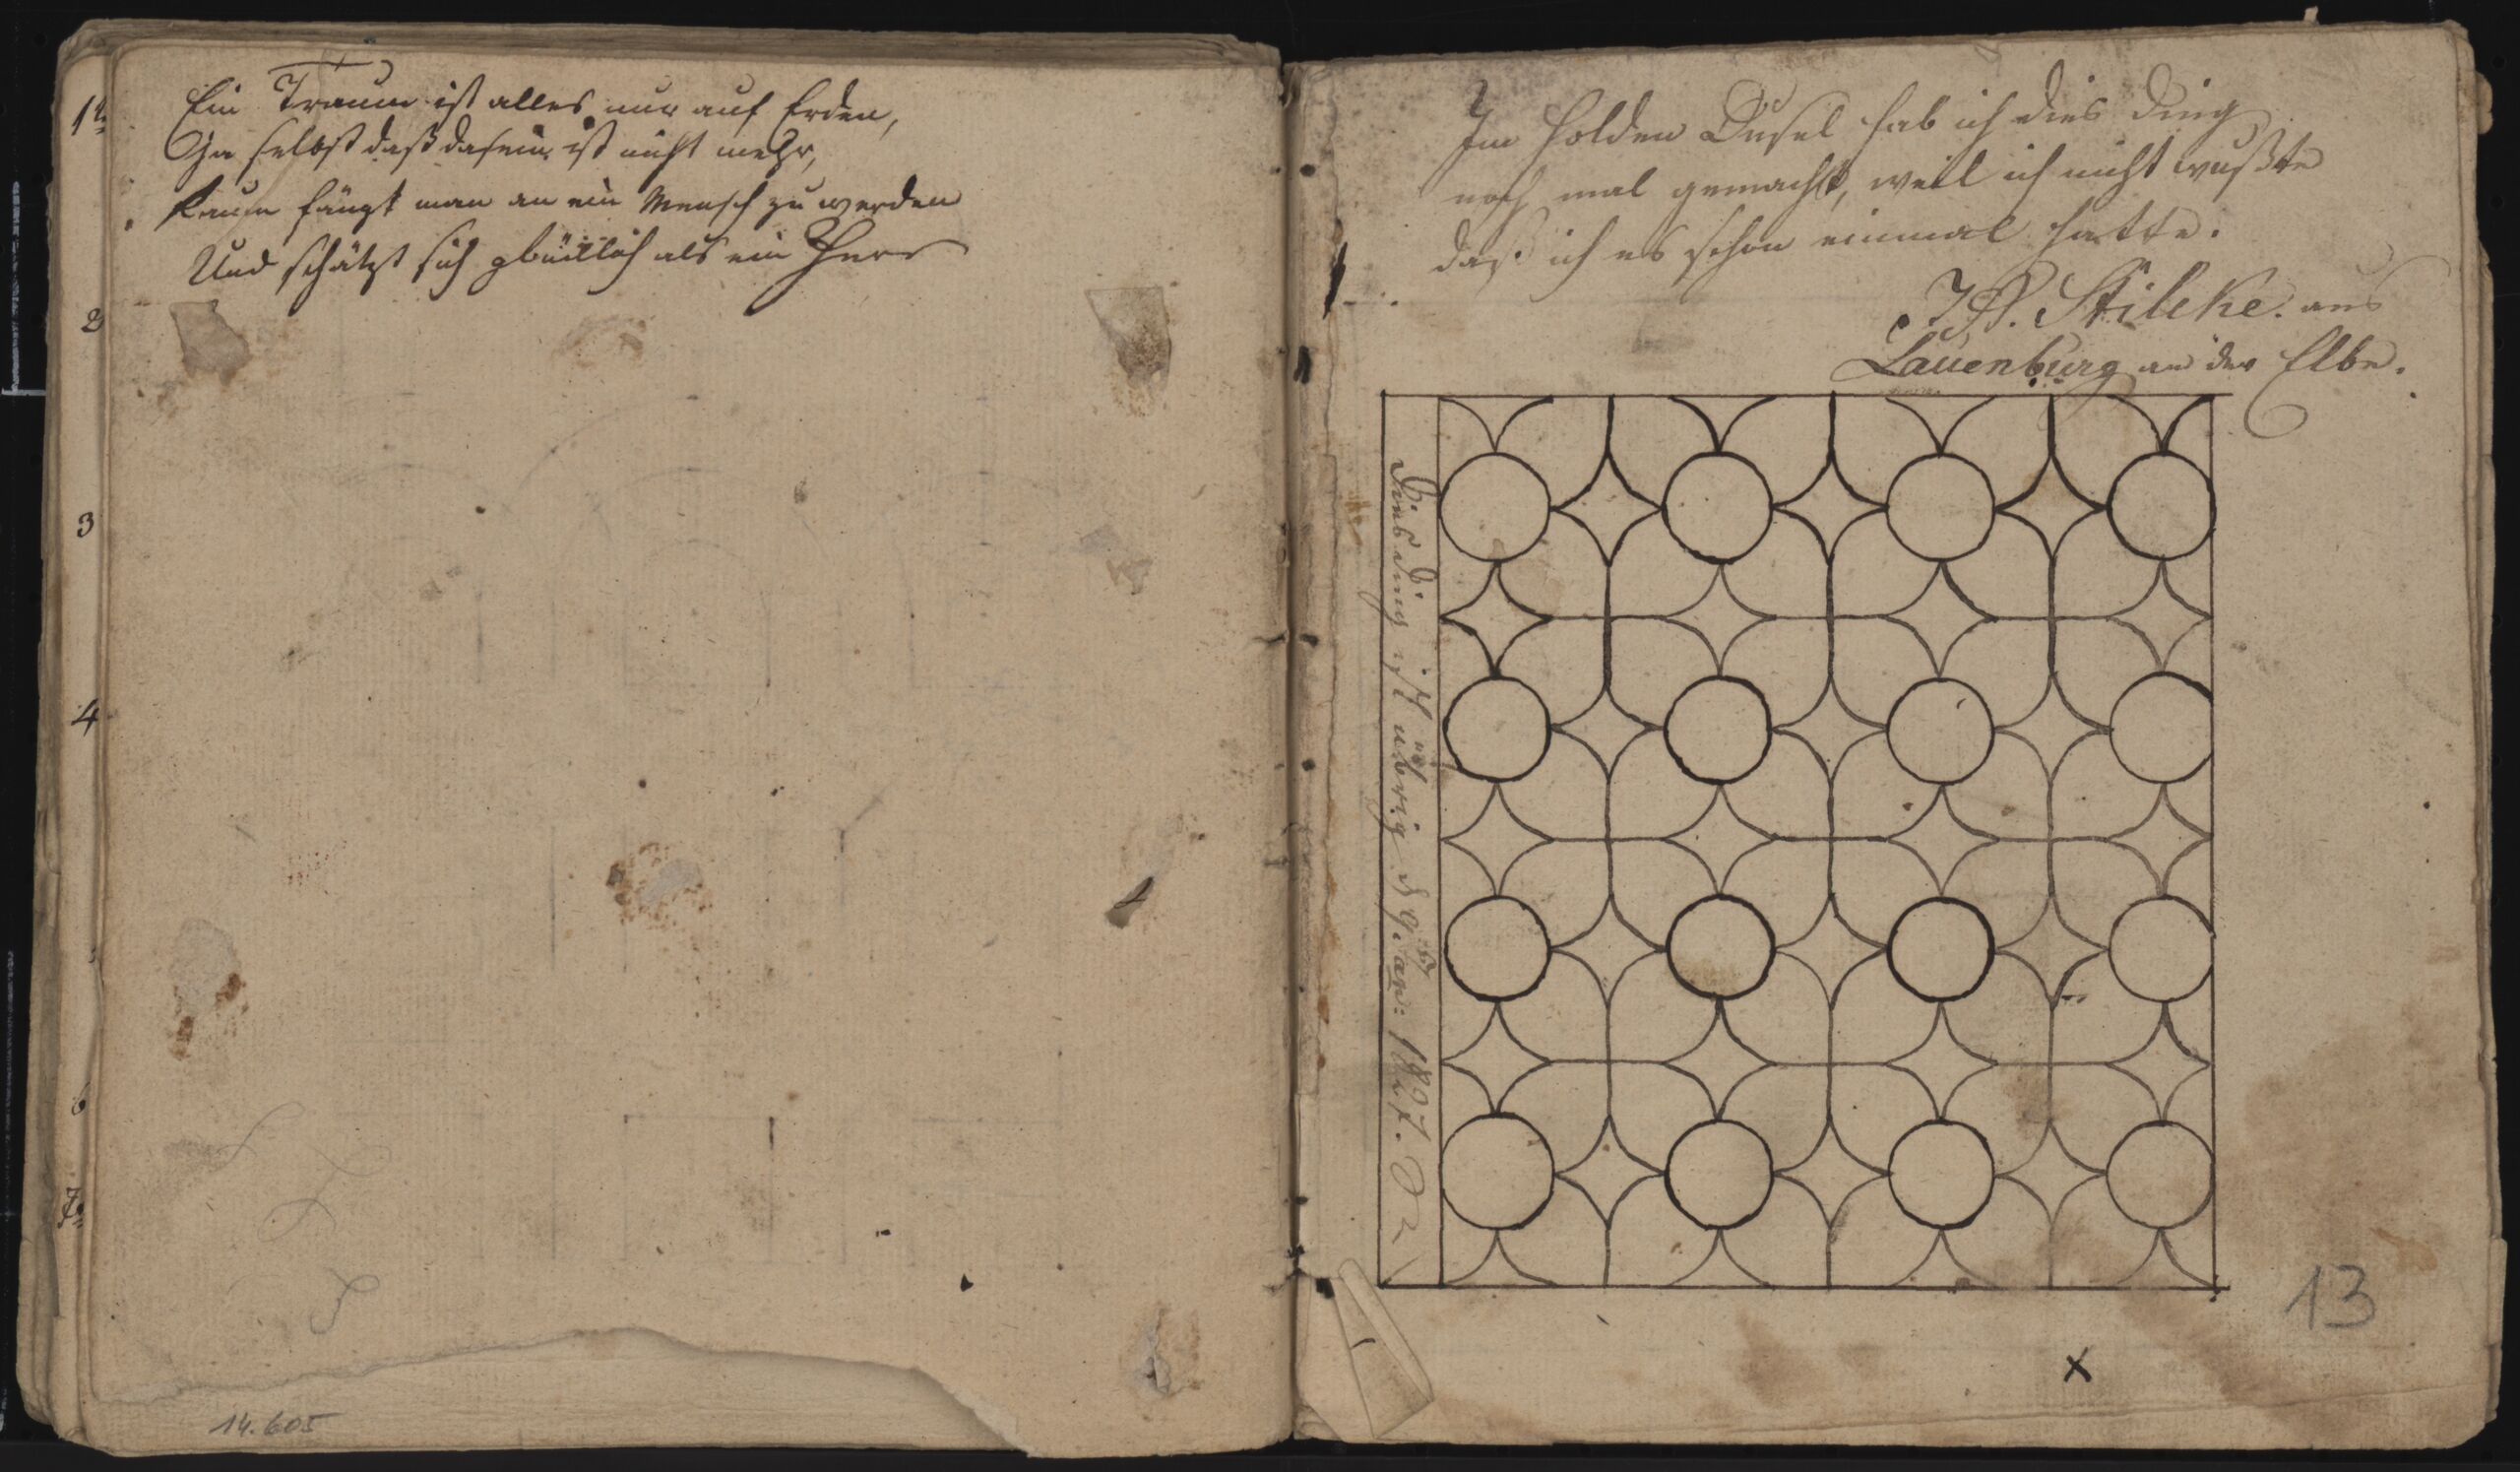 Ein Traum ist alles nur auf Erden,
Ja selbst daß dasein ist nicht mehr,
kaum fängt man an ein Mensch zu werden
Und schätzt sich glücklich als ein Herr
1
2
3
4
6
7
14.605
Im holden Dusel hab ich dies Ding
noch mal gemacht, weil ich nicht wußte
daß ich es schon einmal hatte.
Stilcke. aus
Lauenburg an der Elbe.
Dies Ding ist übrig
1827.
13
x